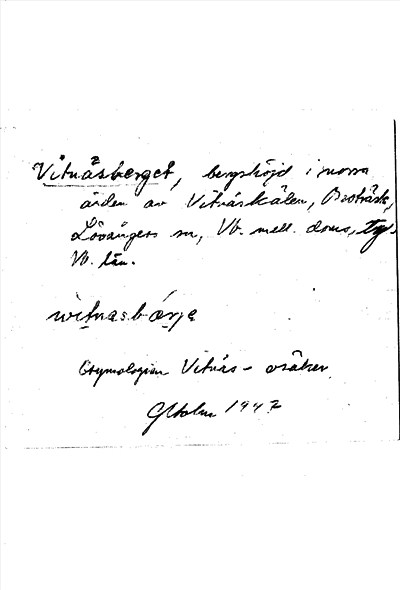 Vitnäsberget, bergshöjd i norra
änden av Vitnäskälen, Broträsk,
Lövångers sn, Vb. mell. doms,
Vb. län.
witnasbärje
Etymologien Vitnäs- osäker
GHolm 1947